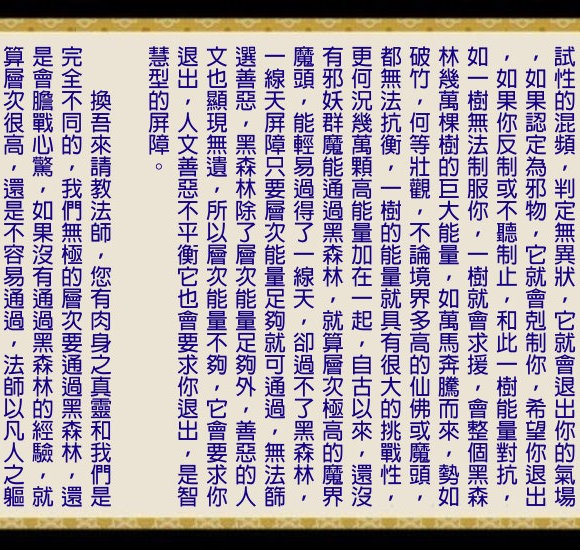 試性的混頻，判定無異狀，它就會退出你的氣場
，如果認定為邪物，它就會剋制你，希望你退出
，如果你反制或不聽制止，和此一樹能量對抗，
如一樹無法制服你，一樹就會求援，會整個黑森
林幾萬棵樹的巨大能量，如萬馬奔騰而來，勢如
破竹，何等壯觀，不論境界多高的仙佛或魔頭，
都無法抗衡，一樹的能量就具有很大的挑戰性，
更何況幾萬顆高能量加在一起，自古以來，還沒
有邪妖群魔能通過黑森林，就算層次極高的魔界
魔頭，能輕易過得了一線天，卻過不了黑森林，
一線天屏障只要層次能量足夠就可通過，無法篩
選善惡，黑森林除了層次能量足夠外，善惡的人
文也顯現無遺，所以層次能量不夠，它會要求你
退出，人文善惡不平衡它也會要求你退出，是智
慧型的屏障。
換吾來請教法師，您有肉身之真靈和我們是
完全不同的，我們無極的層次要通過黑森林，還
是會膽戰心驚，如果沒有通過黑森林的經驗，就
算層次很高，還是不容易通過，法師以凡人之軀